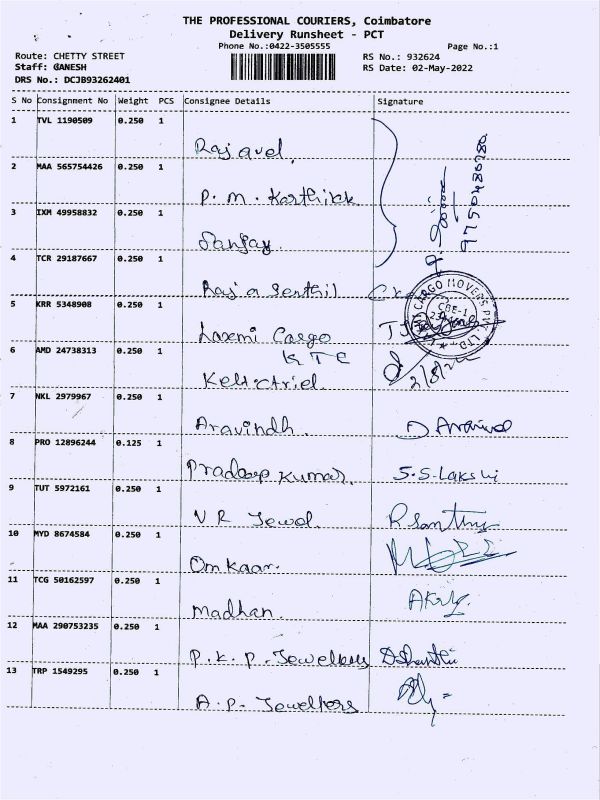 THE PROFESSIONAL COURIERS, Coimbatore
Delivery Runsheet - PCT
Phone No.:0422-3505555 Page No.:1
Route: CHETTY STREET RS No.: 932624
Staff: GANESH RS Date: 02-May-2022
DRS No.: DCJB93262401
S No Consignment No Weight PCS Consignee Details Signature
1 TVL 1190509 0.250 1
Rajavel.
2 MAA 565754426 0.250 1
P. M. Karthikk
3 IXM 49958832 0.250 1
Sanjay
4 TCR 29187667 0.250 1
Raja Senthil
5 KRR 5348908 0.250 1
Laxmi Cargo
KTC
6 AMD 24738313 0.250 1
2/5/22
7 NKL 2979967 0.250 1
Aravindh. D. Aravind
8 PRO 12896244 0.125 1
Pradeep Kumar. S.S-Lakshi
9 TUT 5972161 0.250 1
V R Jewel.
10 MYD 8674584 0.250 1
Om Kaar.
11 TCG 50162597 0.250 1
Madhan.
12 MAA 290753235 0.250 1
P.K.P. Jewellers
13 TRP 1549295 0.250 1
A.P. Jewellers
CARGO MOVERS PVT LTD
CBE-1